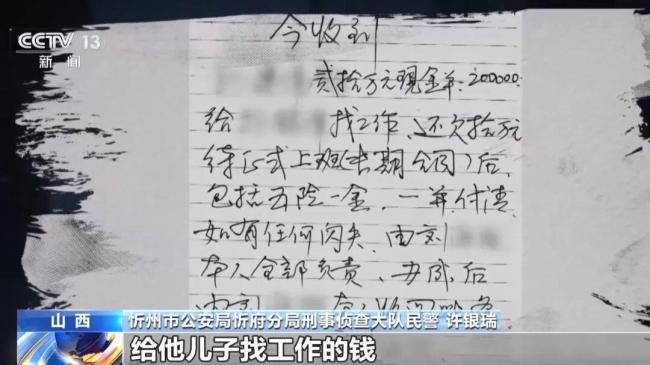 CCTV 13
新闻
今收到
贰拾万元现金羊:200000.
给 找工作,还欠拾万元
待正式上班(长期合同)后,
包括五险一金,一并付清,
如有任何闪失,由刘
本人全部负责,办成后
由刘
山西
忻州市公安局忻府分局刑事侦查大队民警 许银瑞
给他儿子找工作的钱